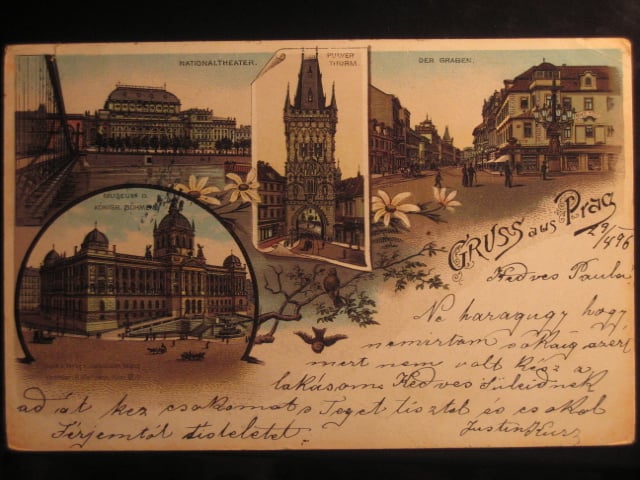 NATIONALTHEATER.
PULVER
THURM.
DER GRABEN.
MUSEUM D.
KÖNIGR. BÖHMEN
GRUSS aus Prag
29/4 96
Kedves Paula
Ne haragugy hogy
nemirtam sokaig azért
mert nem volt kész a
lakásom Kedves Süleidnek
ad át kez csokomat s Teget tisztel és csokol
Férjemtöl tisteletet
Justin Kurz